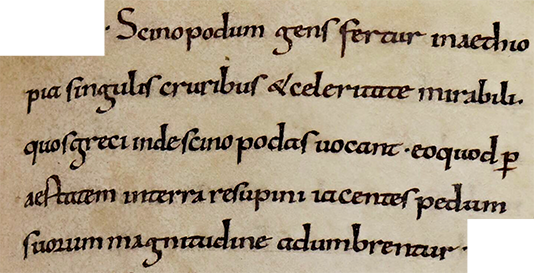 · Scinopodum gens fertur inaethio
pia singulis cruribus &celeritate mirabili.
quosgreci indescinopodas uocant · eoquod ꝑ
aestatem interra resupini iacentes pedum
suorum magnitudine adumbrentur ·